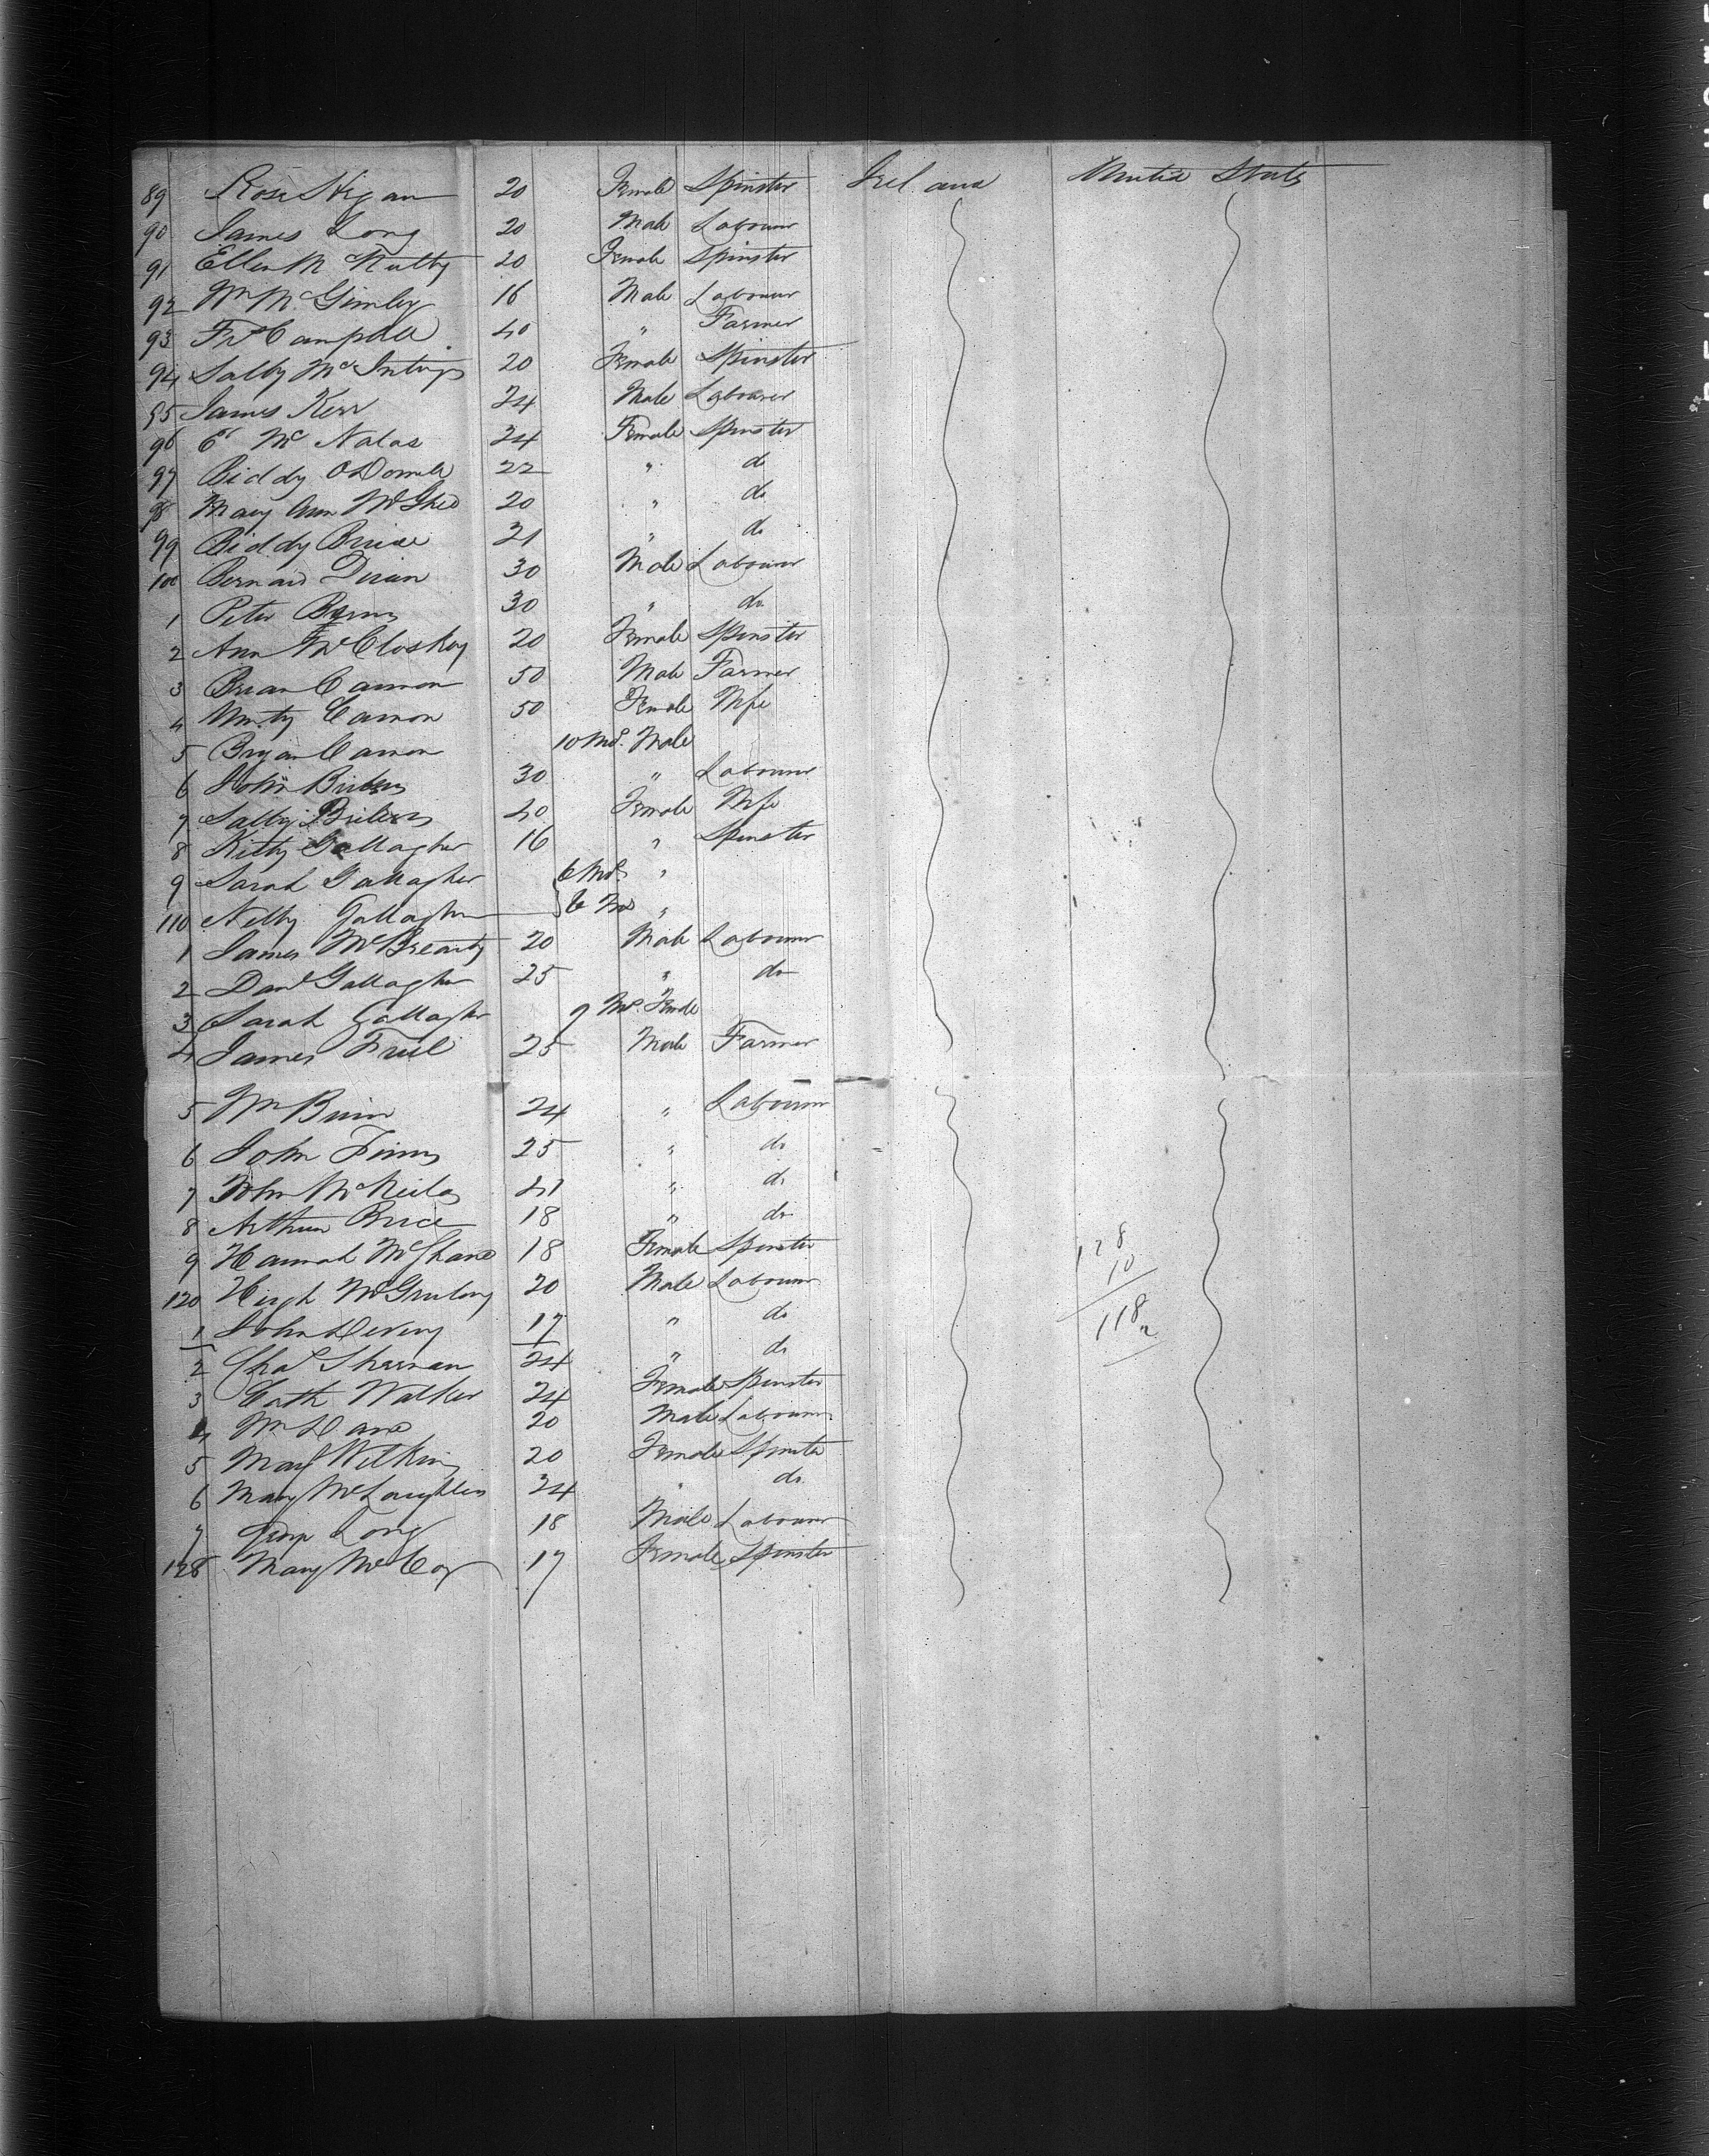 89 Rose Higan 20 Female Spinster Ireland United States
90 James Long 20 Male Labourer
91 Ellen McNulty 20 Female Spinster
92 Wm McGinley 16 Male Labourer
93 Campbell 40 " Farmer
94 Sally McIntyre 20 Female Spinster
95 James Kerr 24 Male Labourer
96 Mc 24 Female Spinster
97 Biddy O'Donnell 22 " do
98 Mary Ann McGhee 20 " do
99 Biddy Brice 21 " do
100 Bernard 30 Male Labourer
1 Peter Burns 30 " do
2 Ann McCloskey 20 Female Spinster
3 Brian Cannon 50 Male Farmer
4 Unity Cannon 50 Female Wife
5 Bryan Cannon 10 Ms. Male
6 John 30 " Labourer
7 Sally 40 Female Wife
8 Kitty Gallagher 16 " Spinster
9 Sarah Gallagher 6 Ms "
110 Nelly Gallagher 6 Ms "
1 James McBrearty 20 Male Labourer
2 Danl Gallagher 25 " do
3 Sarah Gallagher 9 Ms. Female
4 James Friel 25 Male Farmer
5 Wm 24 " Labourer
6 John 25 " do
7 John 21 " do
8 Arthur Brice 18 " do
9 Hannah McShane 18 Female Spinster
120 Hugh 20 Male Labourer
1 John Deveny 17 " do
2 Chas Sharman 24 " do
3 Cath Walker 24 Female Spinster
4 Wm 20 Male Labourer
5 Mary Wilkin 20 Female Spinster
6 Mary McLaughlin 24 " do
7 Long 18 Male Labourer
128 Mary McCoy 17 Female Spinster
128
10
118